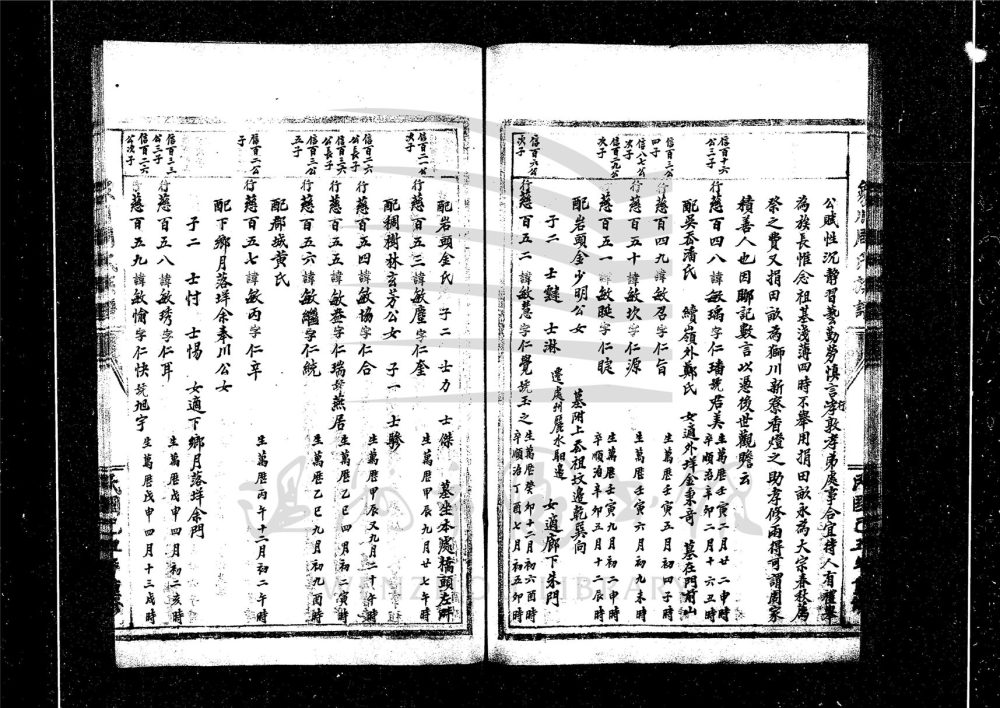 公賦性沉靜習藝勤勞慎言孝敦孝弟處事合宜待人有禮舉
為族長惟念祖基淺薄四時不舉用捐田畝永為大宗春秋為
祭之費又捐田畝為獅川新寮香燈之助孝修兩得可謂周家
積善人也因聊記數言以憑後世觀瞻云
信百十六公三子
行慈百四八諱敏瑀字仁墦號君美
生萬歷壬寅二月廿二申時
卒順治辛卯二月十六丑時
配吳岙潘氏 續嶺外鄭氏 女適外垟金東奇 墓在門前山
信百三公四子
行慈百四九諱敏召字仁旨
生萬歷壬寅四月初四子時
信八七公次子
行慈百五十諱敏坎字仁源
生萬歷壬寅六月初九未時
信百三九公次子
行慈百五一諱敏晅字仁睫
生萬歷壬寅九月十二申時
卒順治辛卯三月十二辰時
配岩頭金少明公女 墓附上岙祖坟邊乾巽向
子二 士 士淋 遷處州麗水 邊 女適廊下朱門
信百六公次子
行慈百五二諱敏慧字仁覺號玉之
生萬歷癸卯十二月初六酉時
卒順治丁酉七月初五卯時
配岩頭金氏 子二 士力 士傑 墓坐本處橋頭左
信百二一公次子
行慈百五三諱敏塵字仁奎
生萬歷甲辰九月廿七午時
配稠樹林玄方公女 子一 士驂
信百二六公長子
行慈百五四諱敏協字仁合
生萬歷甲辰又九月二十午時
信百三六公長子
行慈百五五諱敏益字仁瑞號燕居
生萬歷乙巳四月初二寅時
信百三公五子
行慈百五六諱敏繼字仁統
生萬歷乙巳九月初九酉時
配郡城黄氏
信百二公子
行慈百五七諱敏丙字仁辛
生萬歷丙午十二月初二午時
配下鄉月落垟余奉川公女
子二 士忖 士惕 女適下鄉月落垟余門
信百三二公三子
行慈百五八諱敏琇字仁耳
生萬歷戊申四月初二亥時
信百二六公次子
行慈百五九諱敏愉字仁快號旭宇
生萬歷戊申四月十三戌時
WENZHOU LIBRARY